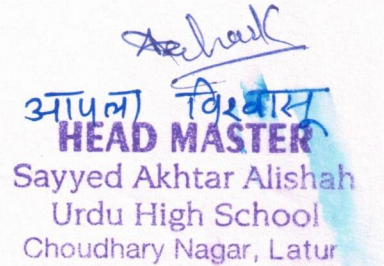 आपला विश्वासू
HEAD MASTER
Sayyed Akhtar Alishah
Urdu High School
Choudhary Nagar, Latur